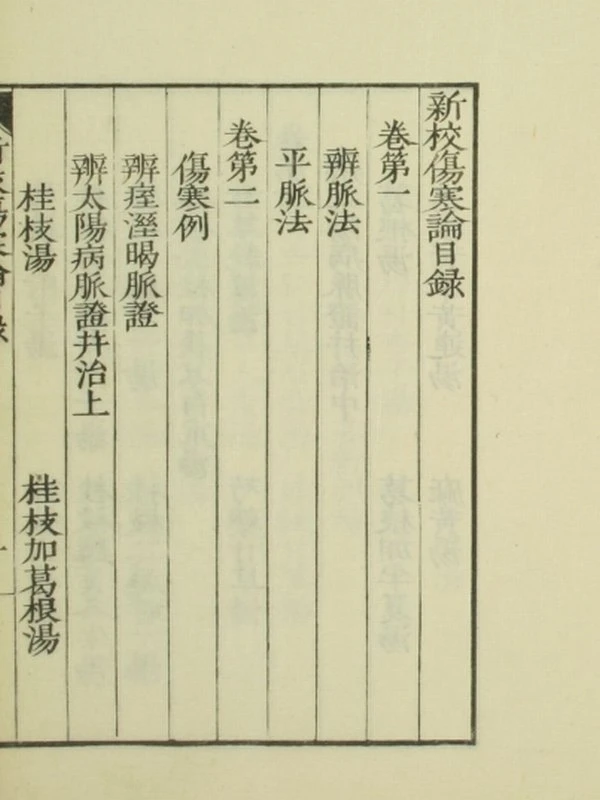 新校傷寒論目録
卷第一
辨脈法
平脈法
卷第二
傷寒例
辨痓溼暍脈證
辨太陽病脈證幷治上
桂枝湯
桂枝加葛根湯